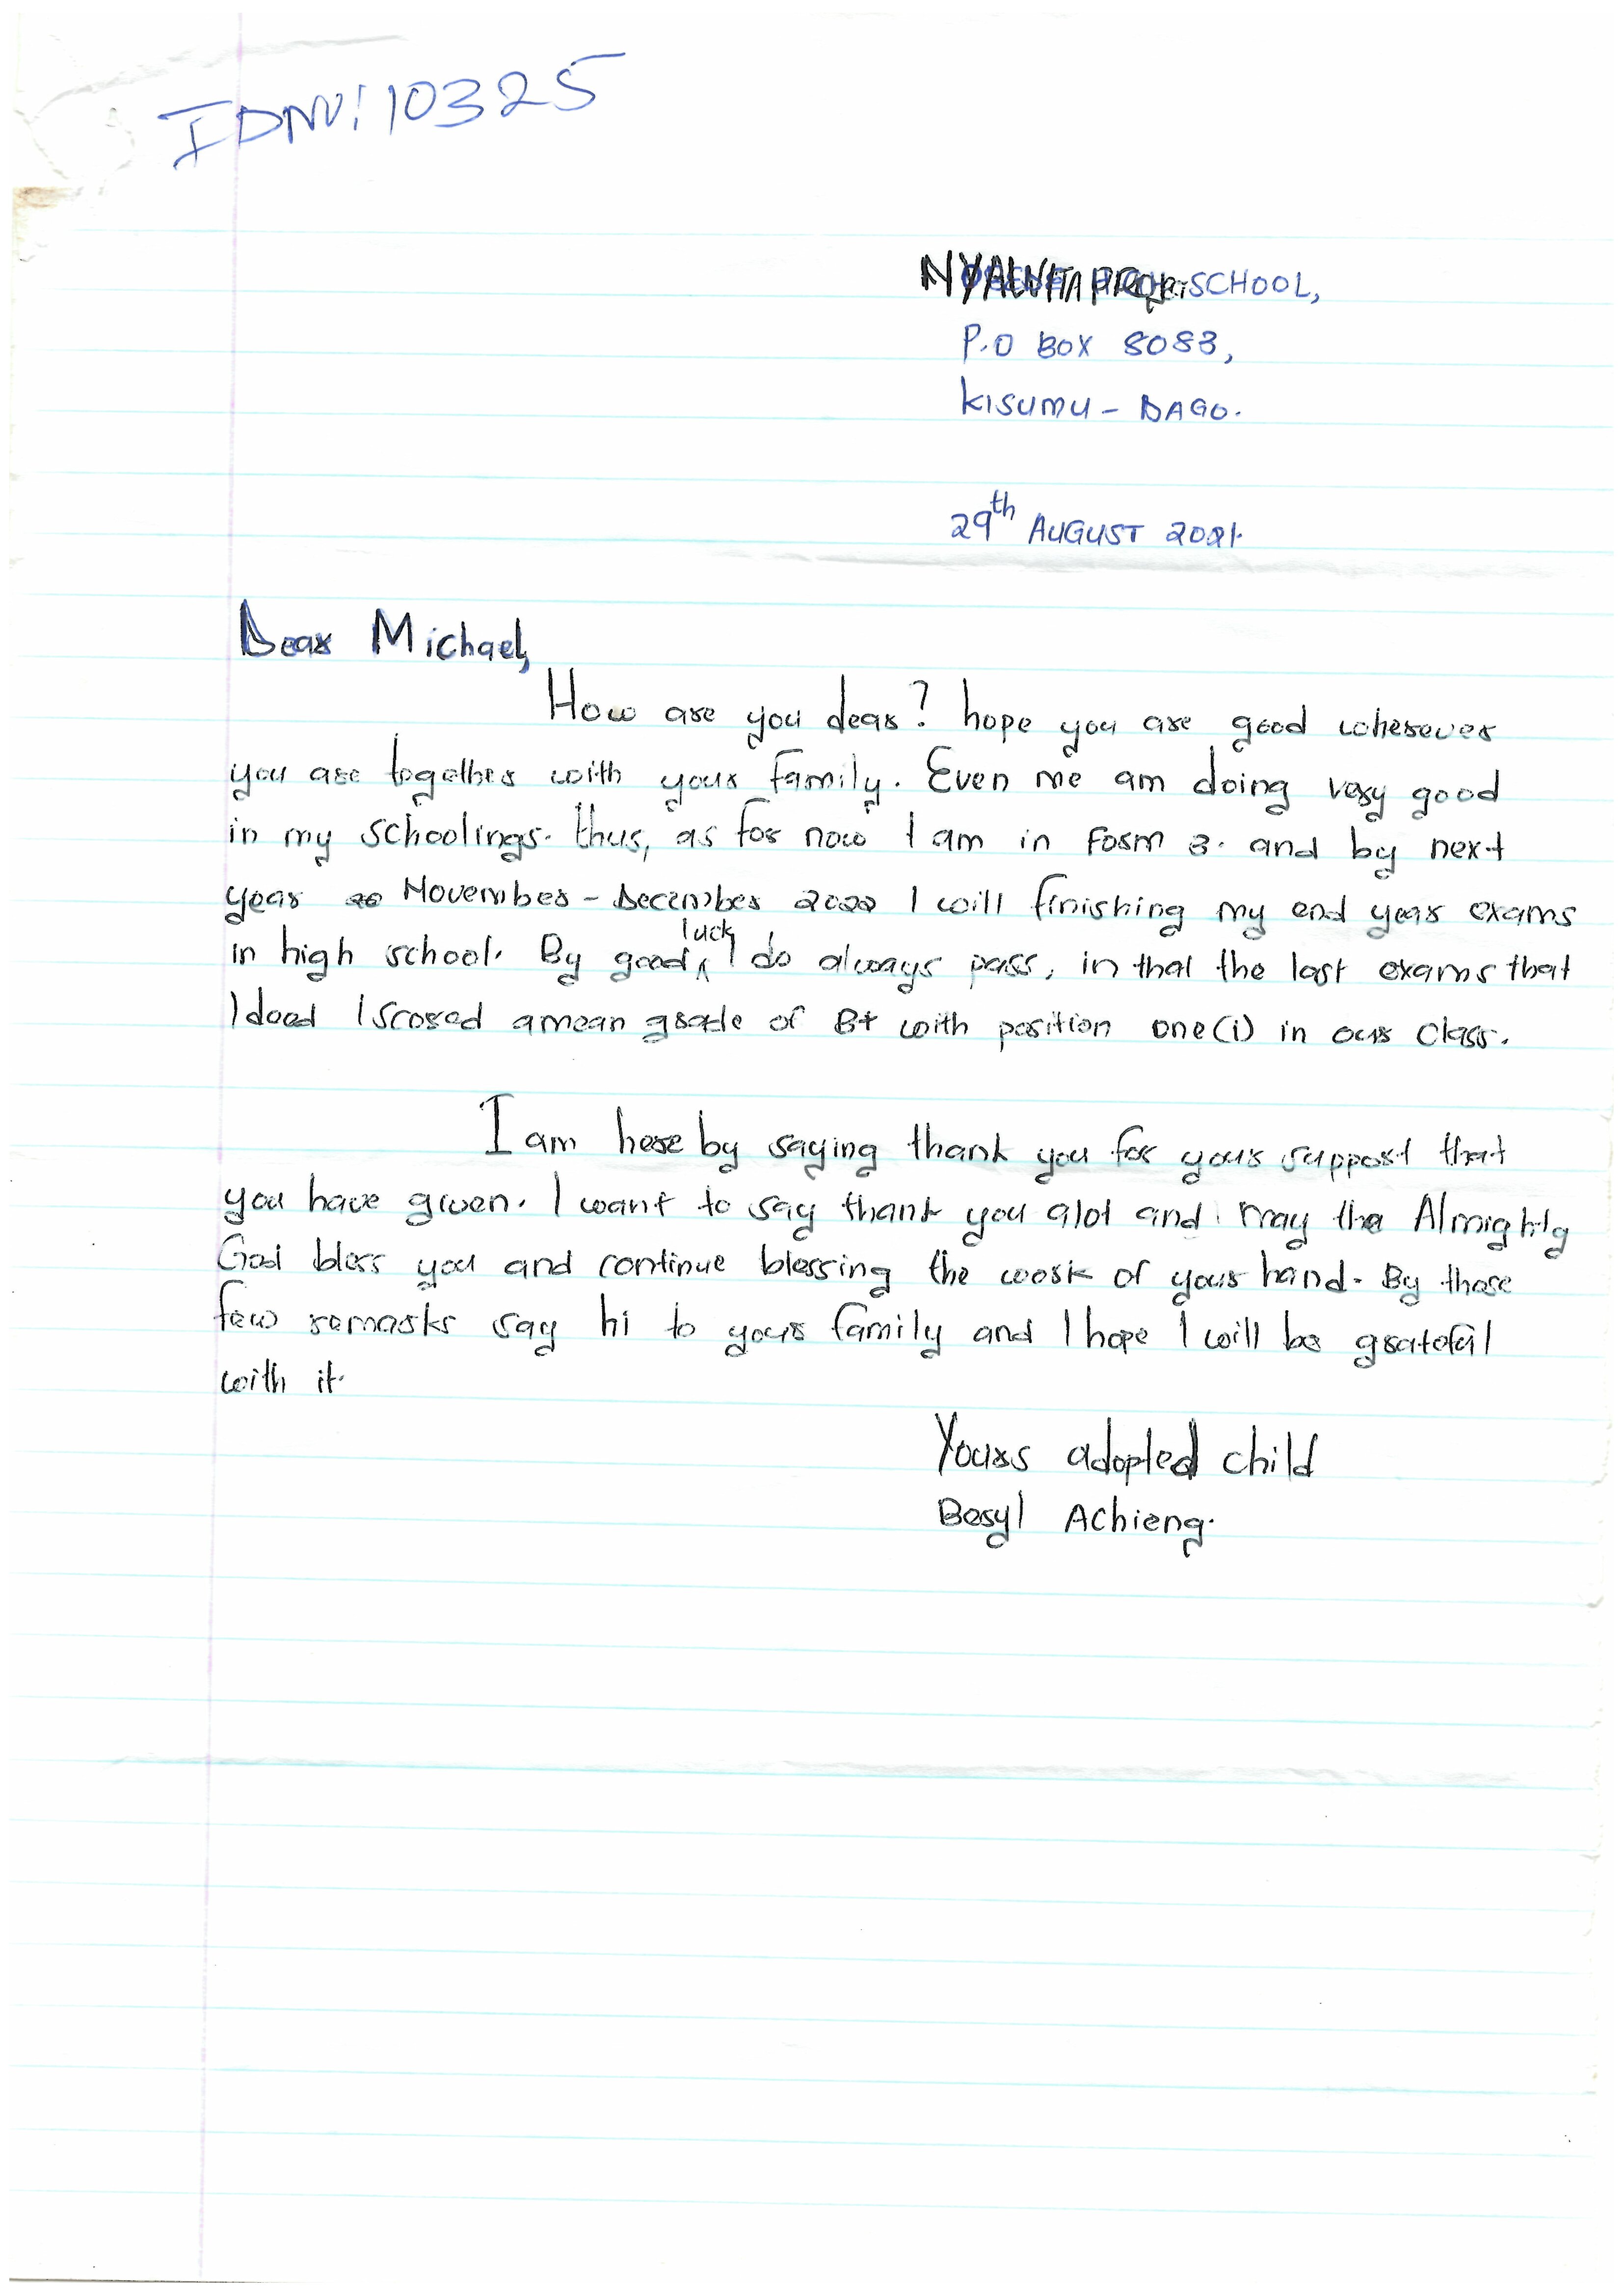 IDNO: 10325
SCHOOL,
P.O BOX 8083,
KISUMU - DAGO.
29th AUGUST 2021.
Dear Michael,
How are you dear? hope you are good wherever
you are together with your family. Even me am doing very good
in my schoolings. thus, as for now I am in Form 3. and by next
year November - December 2022 I will finishing my end year exams
in high school. By good luck I do always pass, in that the last exams that
I doed I scored a mean grade of B+ with position one (1) in our class.
I am here by saying thank you for your support that
you have given. I want to say thank you alot and may the Almighty
God bless you and continue blessing the work of your hand. By those
few remarks say hi to your family and I hope I will be grateful
with it.
Yours adopted child
Beryl Achieng.